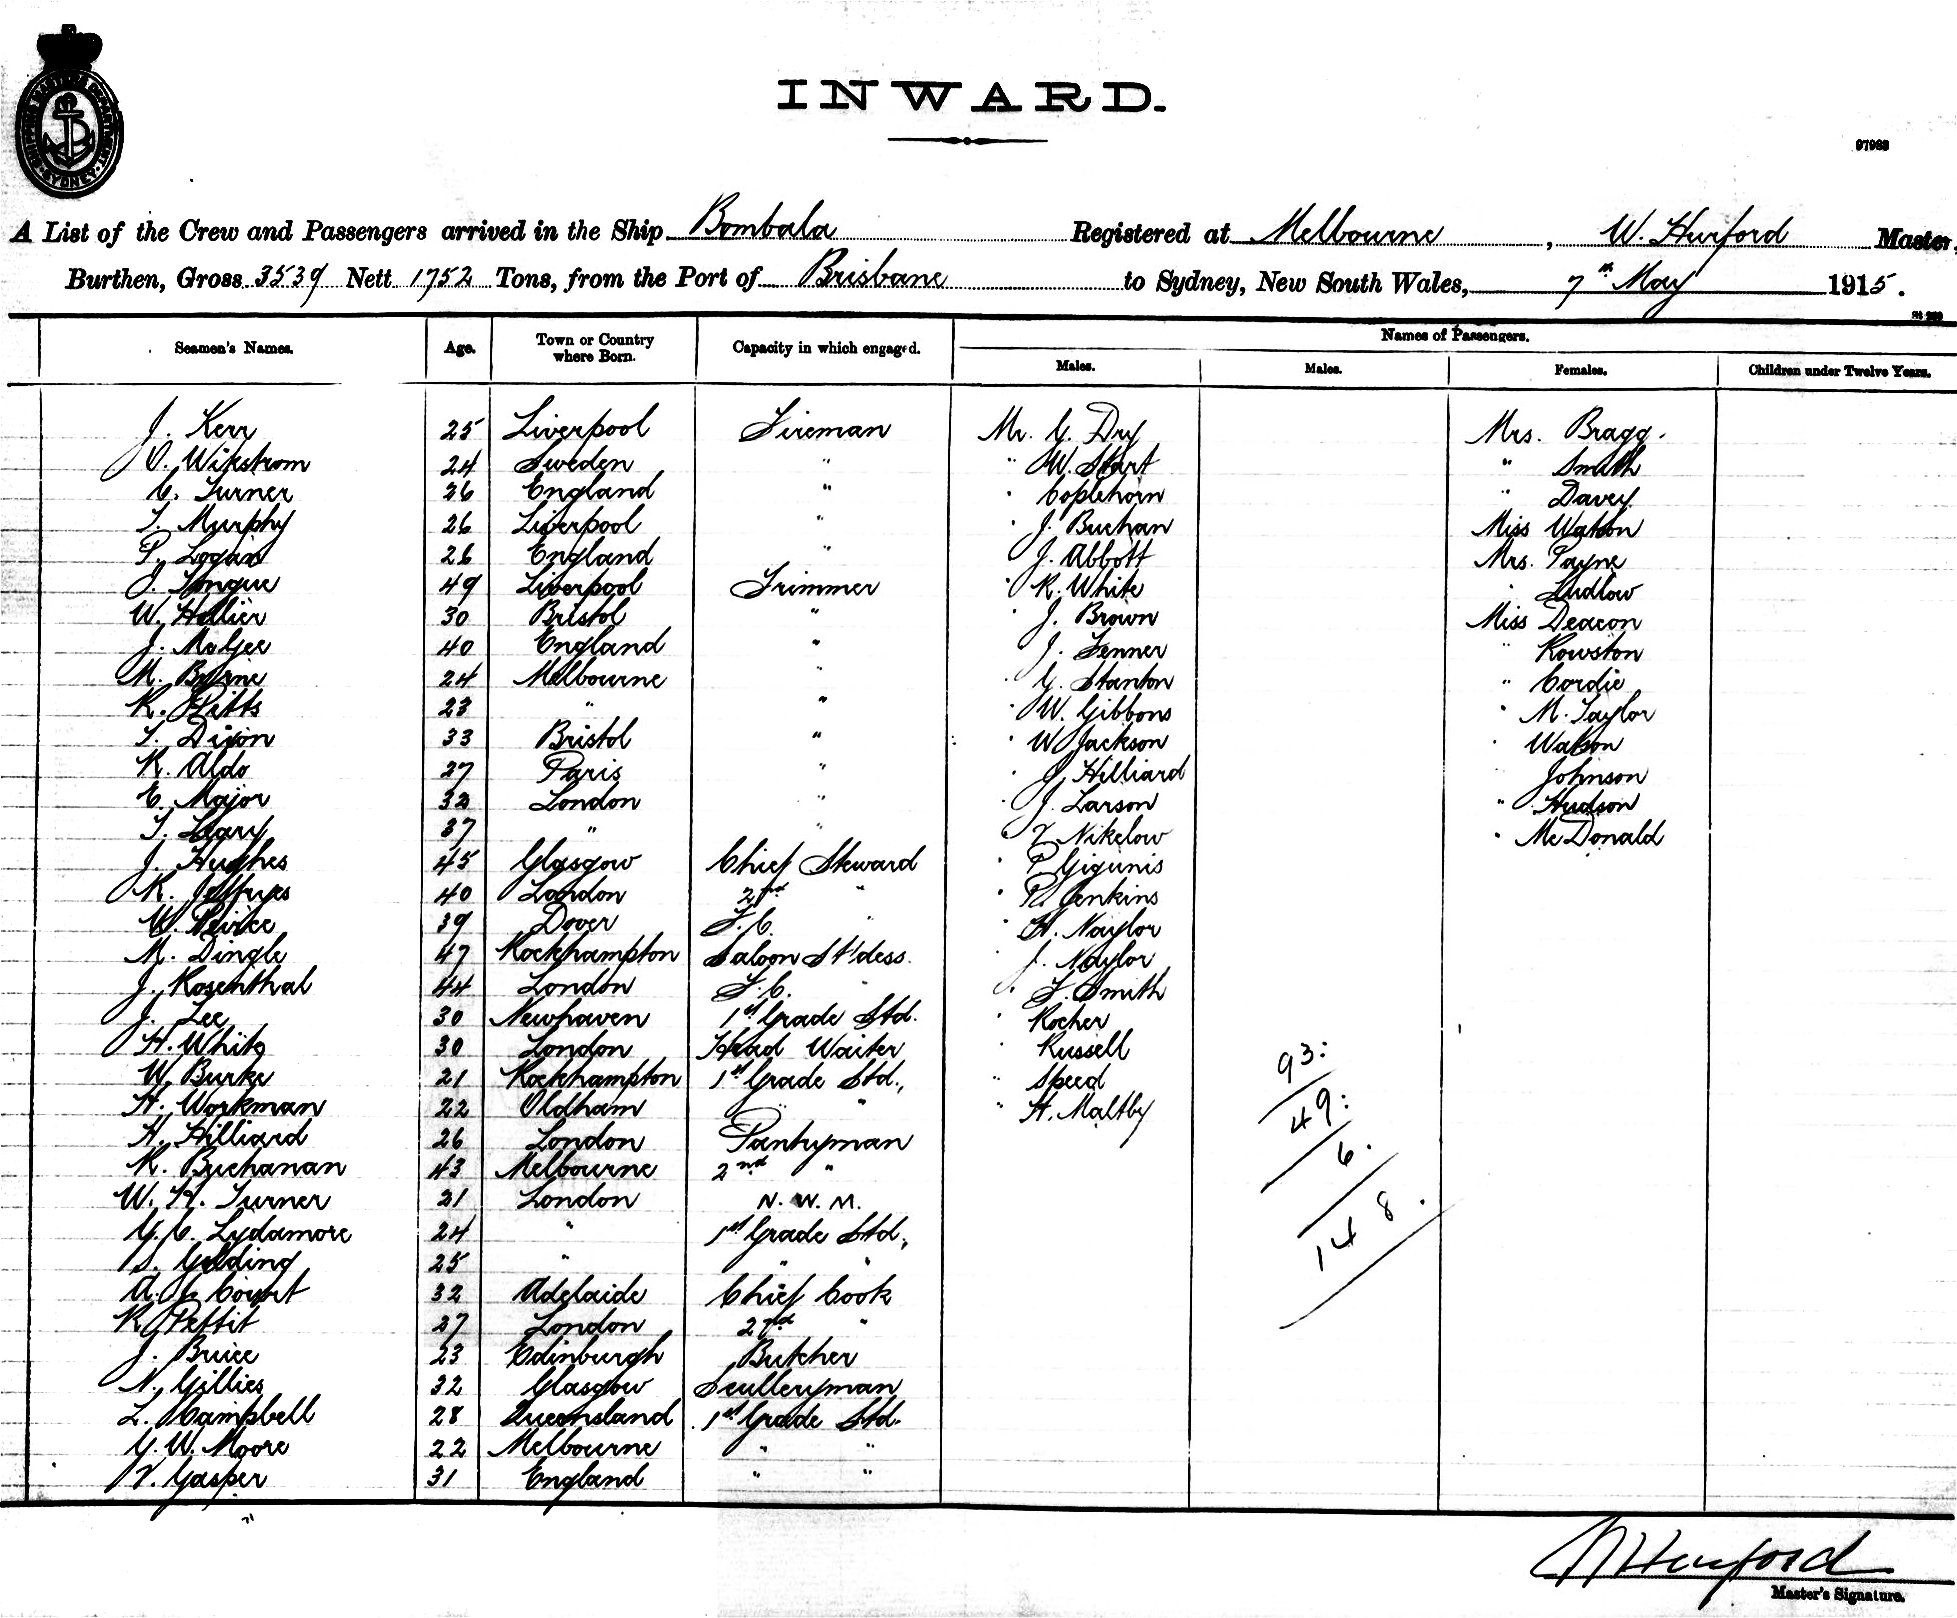 SHIPPING MASTER'S DEPARTMENT
SYDNEY
INWARD.
97983
A List of the Crew and Passengers arrived in the Ship Bombala Registered at Melbourne, W. Hurford Master,
Burthen, Gross 3539 Nett 1752 Tons, from the Port of Brisbane to Sydney, New South Wales, 7th May 1915.
Names of Passengers.
Seamen's Names. Age. Town or Country where Born. Capacity in which engaged. Males. Males. Females. Children under Twelve Years.
J. Kerr 25 Liverpool Fireman Mr. G. Dry Mrs. Bragg.
O. Wikstrom 24 Sweden " " W. Start " Smith
C. Turner 26 England " " Coplehorn " Davey
T. Murphy 26 Liverpool " " J. Buchan Miss Watson
P. Logan 26 England " " J. Abbott Mrs. Payne
J. Tongue 49 Liverpool Trimmer " R. White " Ludlow
W. Hellier 30 Bristol " " J. Brown Miss Deacon
J. McGee 40 England " " J. Fenner " Rowston
M. Byrne 24 Melbourne " " G. Stanton " Cordie
R. Pitts 23 " " " W. Gibbons " M. Taylor
T. Dixon 33 Bristol " " W. Jackson " Watson
R. Aldo 27 Paris " " J. Hilliard " Johnson
E. Major 32 London " " J. Larson " Hudson
T. Leary 37 " " " Nikelow " McDonald
J. Hughes 45 Glasgow Chief Steward " P. Gigunis
R. Jeffryes 40 London 2nd " " R. Jenkins
W. Peirce 39 Dover F.C. " " H. Naylor
M. Dingle 47 Rockhampton Saloon St'dess. J. Naylor
J. Rosenthal 44 London F.C. " " F. Smith
J. Lee 30 Newhaven 1st Grade Std. " Rocher
H. White 30 London Head Waiter " Russell
W. Burke 21 Rockhampton 1st Grade Std., " Speed
H. Workman 22 Oldham " " " H. Maltby
H. Hilliard 26 London Pantryman
R. Buchanan 43 Melbourne 2nd "
W. H. Turner 21 London N.W.M.
G. C. Lydamore 24 " 1st Grade Std.,
S. Gelding 25 " " "
A. Court 32 Adelaide Chief Cook
R. Pettit 27 London 2nd "
J. Bruce 23 Edinburgh Butcher
N. Gillies 32 Glasgow Sculleryman
L. Campbell 28 Queensland 1st Grade Std.
G. W. Moore 22 Melbourne " "
V. Gasper 31 England " "
93:
49:
6.
148.
W Hurford
Master's Signature.